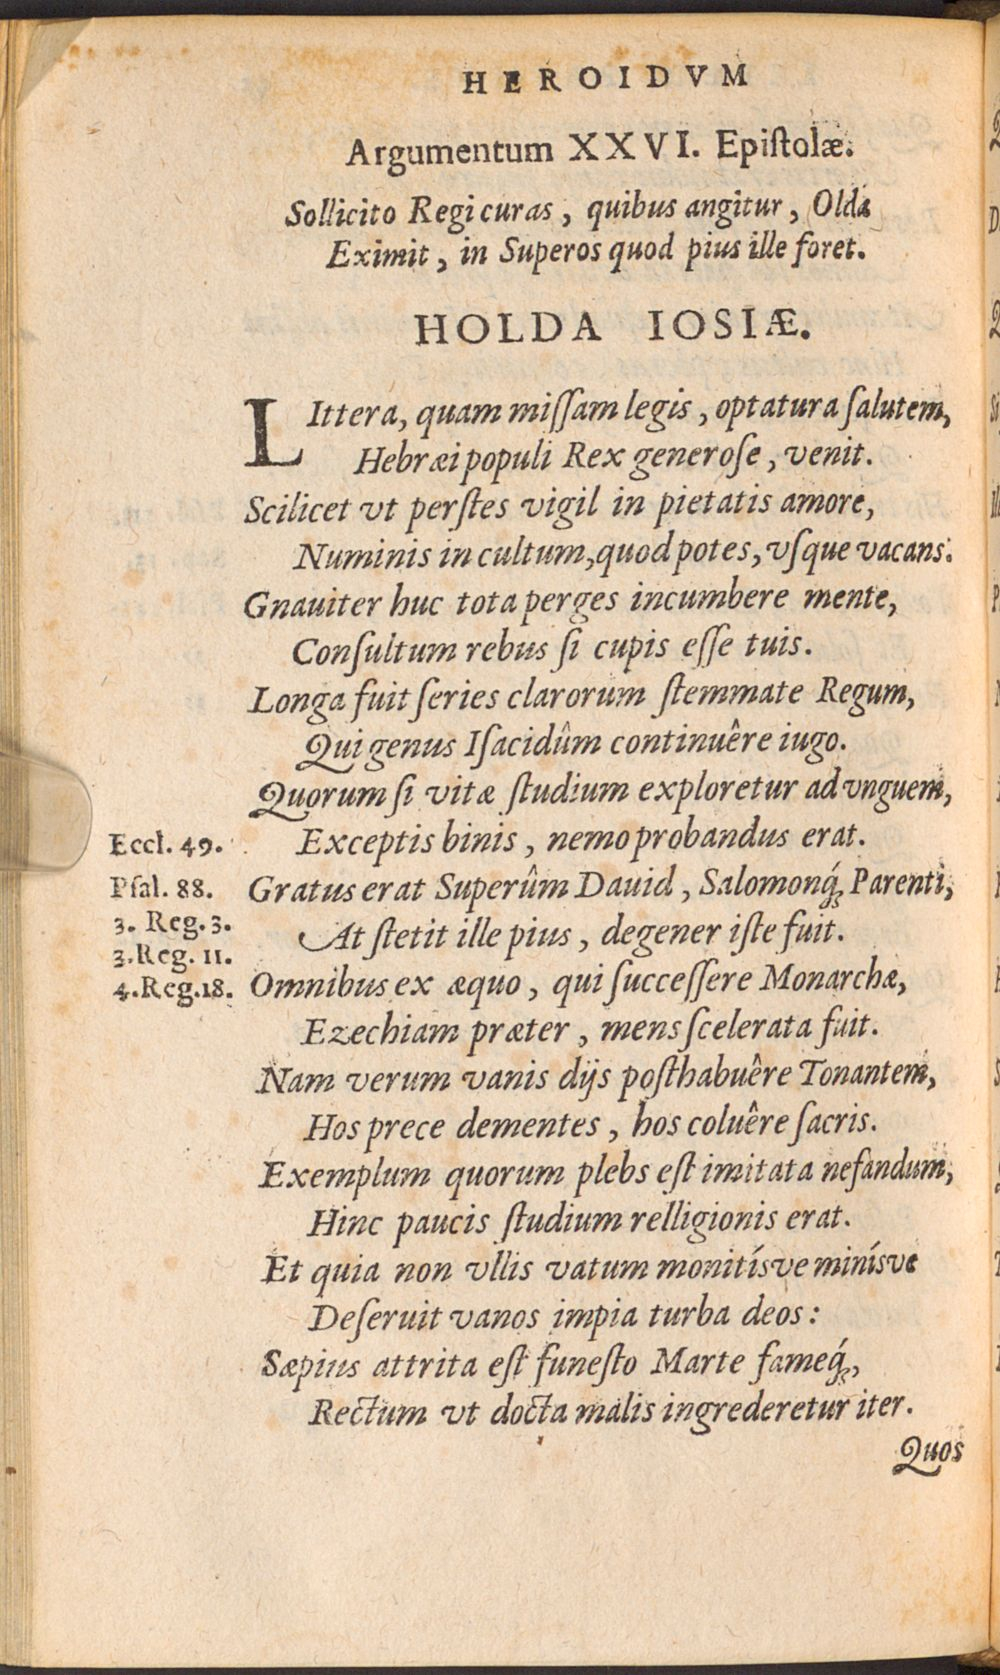 HEROIDVM
Argumentum XXVI. Epiſtolæ.
Sollicito Regi curas, quibus angitur, Olda
Eximit, in Superos quod pius ille foret.
HOLDA IOSIÆ.
LIttera, quam miſſam legis, optatura ſalutem,
Hebræi populi Rex generoſe, venit.
Scilicet vt perſtes vigil in pietatis amore,
Numinis in cultum, quod potes, vſque vacans.
Gnauiter huc tota perges incumbere mente,
Conſultum rebus ſi cupis eſſe tuis.
Longa fuit ſeries clarorum ſtemmate Regum,
Qui genus Iſacidûm continuêre iugo.
Quorum ſi vitæ ſtudium exploretur ad vnguem,
Eccl. 49. Exceptis binis, nemo probandus erat.
Pſal. 88. Gratus erat Superûm Dauid, Salomonq́; Parenti,
3. Reg. 3.
At ſtetit ille pius, degener iſte fuit.
3. Reg. 11.
4. Reg. 18. Omnibus ex æquo, qui ſucceſſere Monarchæ,
Ezechiam præter, mens ſcelerata fuit.
Nam verum vanis dijs poſthabuêre Tonantem,
Hos prece dementes, hos coluêre ſacris.
Exemplum quorum plebs eſt imitata nefandum,
Hinc paucis ſtudium relligionis erat.
Et quia non vllis vatum monitísve minísve
Deſeruit vanos impia turba deos:
Sæpius attrita eſt funeſto Marte fameq́;,
Rectum vt docta malis ingrederetur iter.
Quos